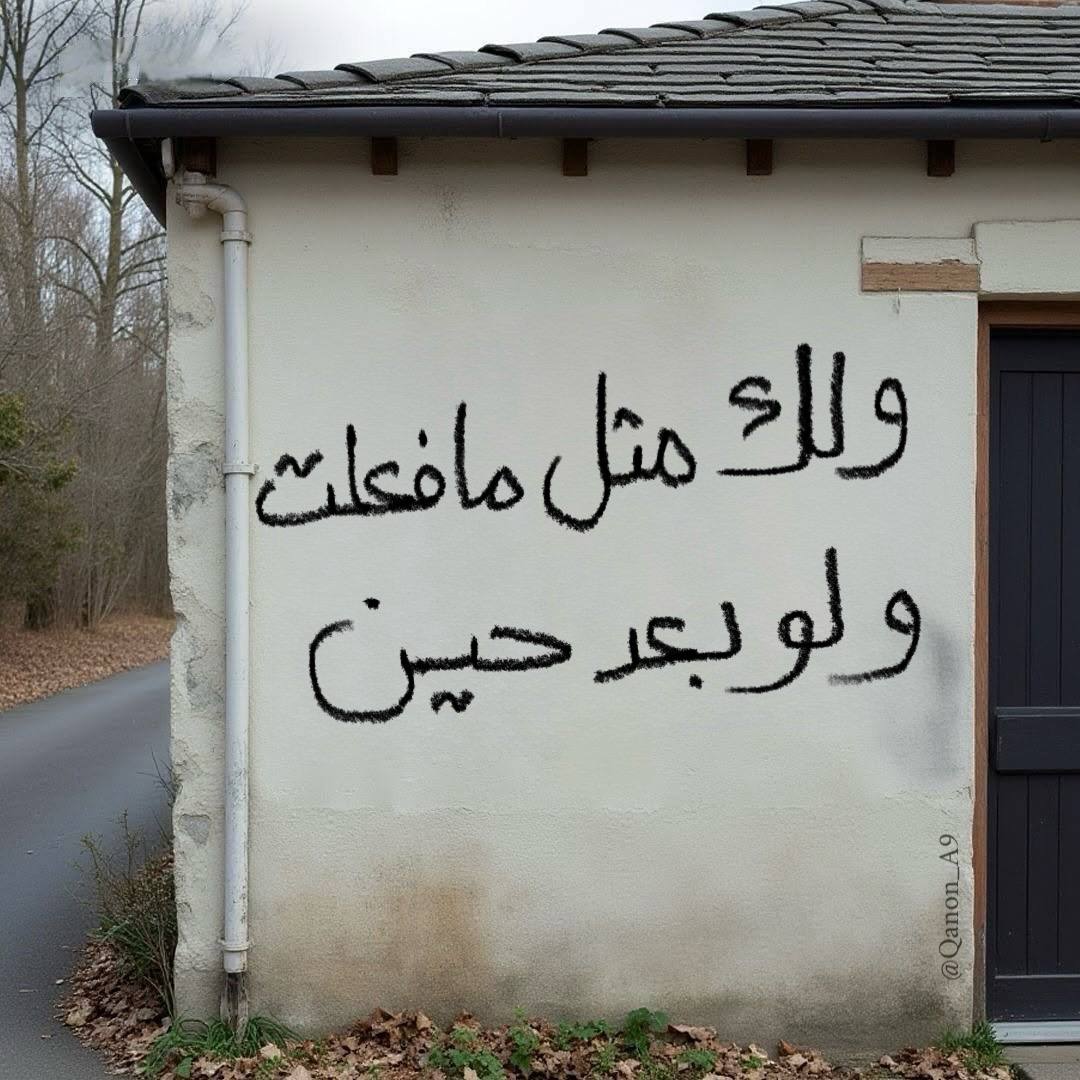 ولك مثل ما فعلت
ولو بعد حين
@Qanon_A9